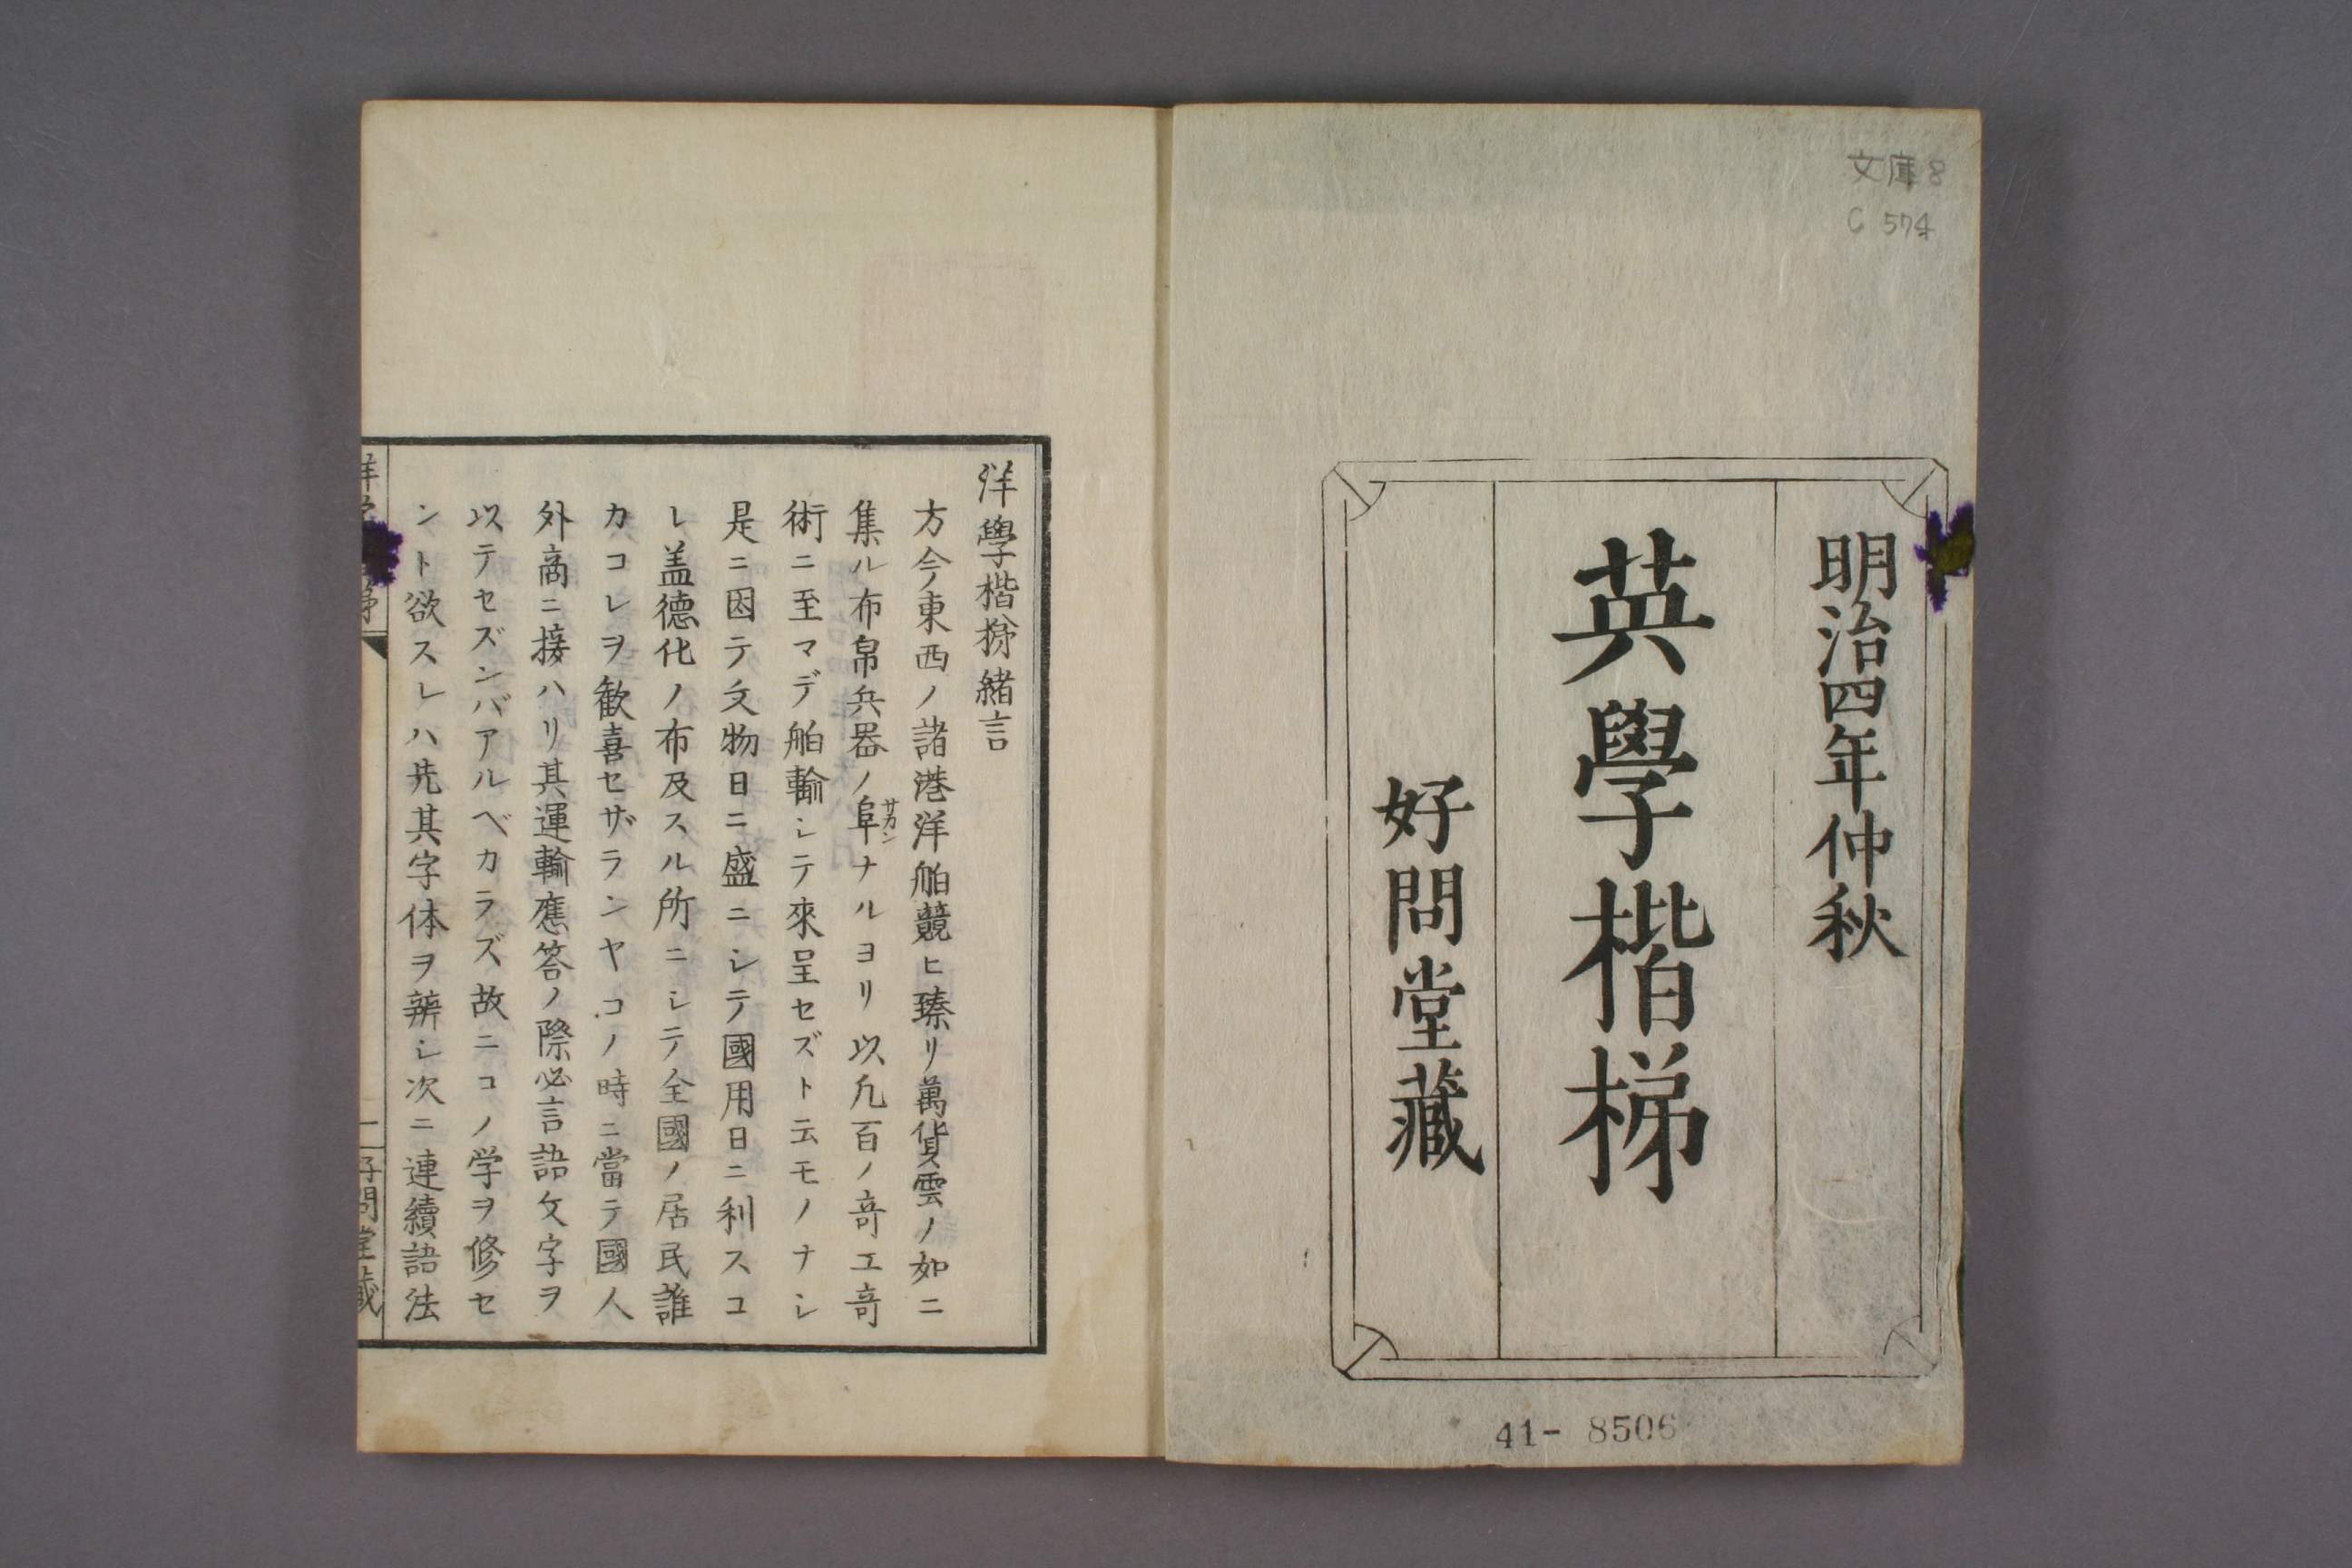 文庫8
C 574
明治四年仲秋
英學楷梯
好問堂藏
41- 8506
洋學楷梯緒言
方今東西ノ諸港洋舶競ヒ臻リ萬貨雲ノ如ニ
集ル布帛兵器ノ阜ナルヨリ以凢百ノ竒工竒
サカン
術ニ至マデ舶輸シテ來呈セズト云モノナシ
是ニ因テ文物日ニ盛ニシテ國用日ニ利スコ
レ盖德化ノ布及スル所ニシテ全國ノ居民誰
カコレヲ歓喜セザランヤコノ時ニ當テ國人
外商ニ接ハリ其運輸應答ノ際必言語文字ヲ
以テセズンバアルベカラズ故ニコノ学ヲ修セ
ント欲スレハ先其字体ヲ辨シ次ニ連續語法
一
好問堂藏